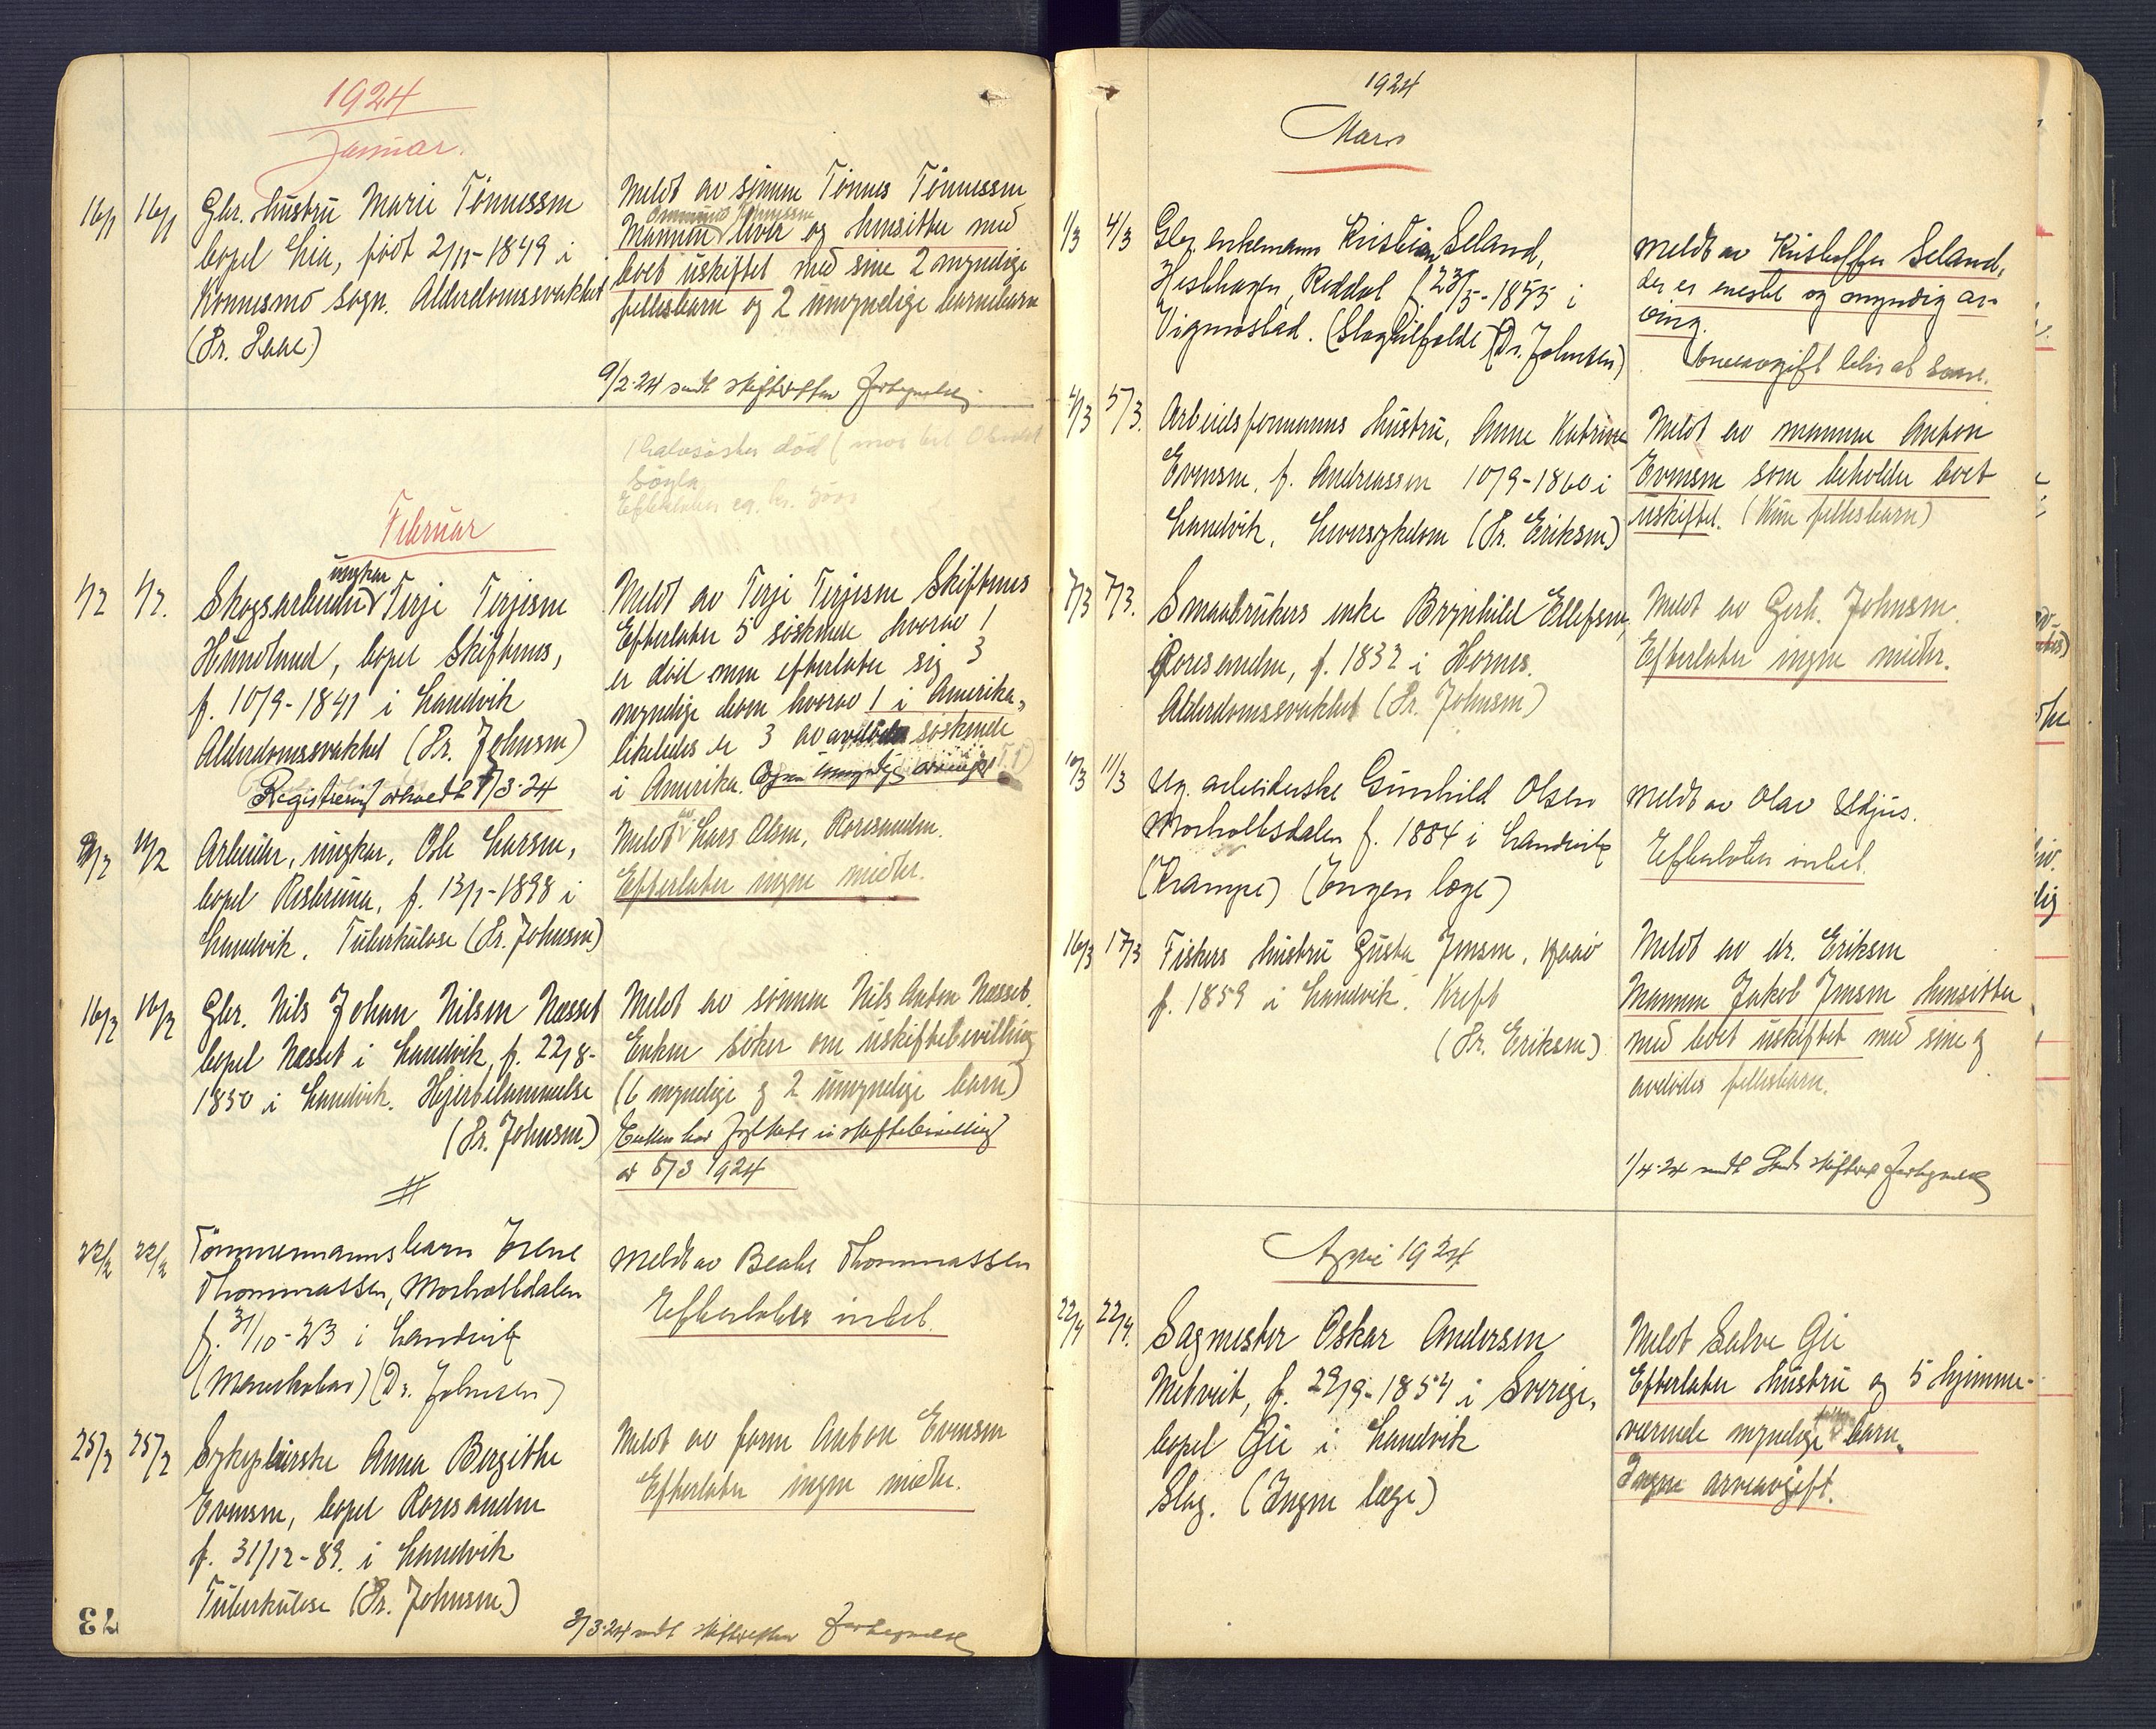 1924
Januar.
16/1 16/1 Gbr. hustru Marie Tönnessen
bopel Lia, född 2/11-1849 i
Konnesmo sogn. Alderdomssvakhet
(Dr. Raae)
Meldt av sönnen Tönnes Tönnessen
Mannen lever og hensitter med
boet uskiftet med sine 2 myndige
fellesbarn og 2 umyndige barnebarn
9/2-24 sendt skifteretten fortegnelse
1 halvsöster död (mor til
Februar
1/2 1/2. Skogsarbeider ungkar Terje Terjesen
bopel Skiftenes,
f. 10/9-1841 i Landvik
Alderdomssvakhet (Dr. Johnsen)
Registrering avholdt 1/3-24
Meldt av Terje Terjesen Skiftenes
Efterlater 5 söskende hvorav 1
er död men efterlater sig 3
myndige barn hvorav 1 i Amerika,
likeledes er 3 av avdödes söskende
i Amerika. Ingen umyndige arvinger
11/2 Arbeider, ungkar, Ole Larsen,
bopel Risbruna, f. 13/1-1898 i
Landvik. Tuberkulose (Dr. Johnsen)
Meldt av Lars Olsen, Roresanden.
Efterlater ingen midler.
16/2 16/2 Gbr. Nils Johan Nilsen Næsset
bopel Næsset i Landvik, f. 22/8-
1850 i Landvik. Hjertelammelse
(Dr. Johnsen)
Meldt av sönnen Nils Anton Næsset.
Enken söker om uskiftebevilling
(6 myndige og 2 umyndige barn)
Enken har faat uskiftebevilling
av 5/3 1924
22/2 22/2 Tömmermannsbarn Irene
Thommassen, Morholtdalen
f. 31/10-23 i Landvik
(Dr. Johnsen)
Meldt av Beate Thommassen
Efterlater intet.
25/2 25/2 Sykepleierske Anna Bergithe
Evensen, bopel Roresanden
f. 31/12-89. i Landvik
Tuberkulose (Dr. Johnsen)
Meldt av faren Anton Evensen
Efterlater ingen midler.
3/3-24 sendt skifteretten fortegnelse
1924
Mars
1/3 4/3 Gbr. enkemann Kristian Seland,
Hesthagen, Reddal f. 23/5-1855 i
Vigmostad. (Slagtilfelde) (Dr. Johnsen)
Meldt av Kristoffer Seland,
der er eneste og myndig ar-
ving.
4/3 5/3. Arbeidsformanns hustru, Anne Katrine
Evensen, f. Andreassen 10/9-1860 i
Landvik, Leversykdom (Dr. Eriksen)
Meldt av mannen Anton
Evensen som beholder boet
uskiftet. (Kun fellesbarn)
7/3 7/3. Smaabrukers enke Brynhild Ellefsen,
Roresanden, f. 1832 i Hornes.
Alderdomssvakhet (Dr. Johnsen)
Meldt av Gerh. Johnsen.
Efterlater ingen midler.
10/3 11/3 Ug. arbeiderske Gunhild Olsen
Morholtsdalen f. 1884 i Landvik
(Krampe) (Ingen læge)
Meldt av Olav Udjus.
Efterlater intet.
16/3 17/3 Fiskers hustru Gusta Jensen,
f. 1859 i Landvik. Kreft
(Dr. Eriksen)
Meldt av dr. Eriksen
Mannen Jakob Jensen hensitter
med boet uskiftet med sine og
avdödes fellesbarn.
1/4-24 sendt skifteret fortegnelse
April 1924
22/4 22/4. Sagmester Oskar Andersen
Metveit, f. 29/9-1854 i Sverige,
bopel Gie i Landvik
Slag. (Ingen læge)
Meldt Salve Gie
Efterlater hustru og 5 hjemme-
værende myndige barn.
Ingen arveavgift.
37